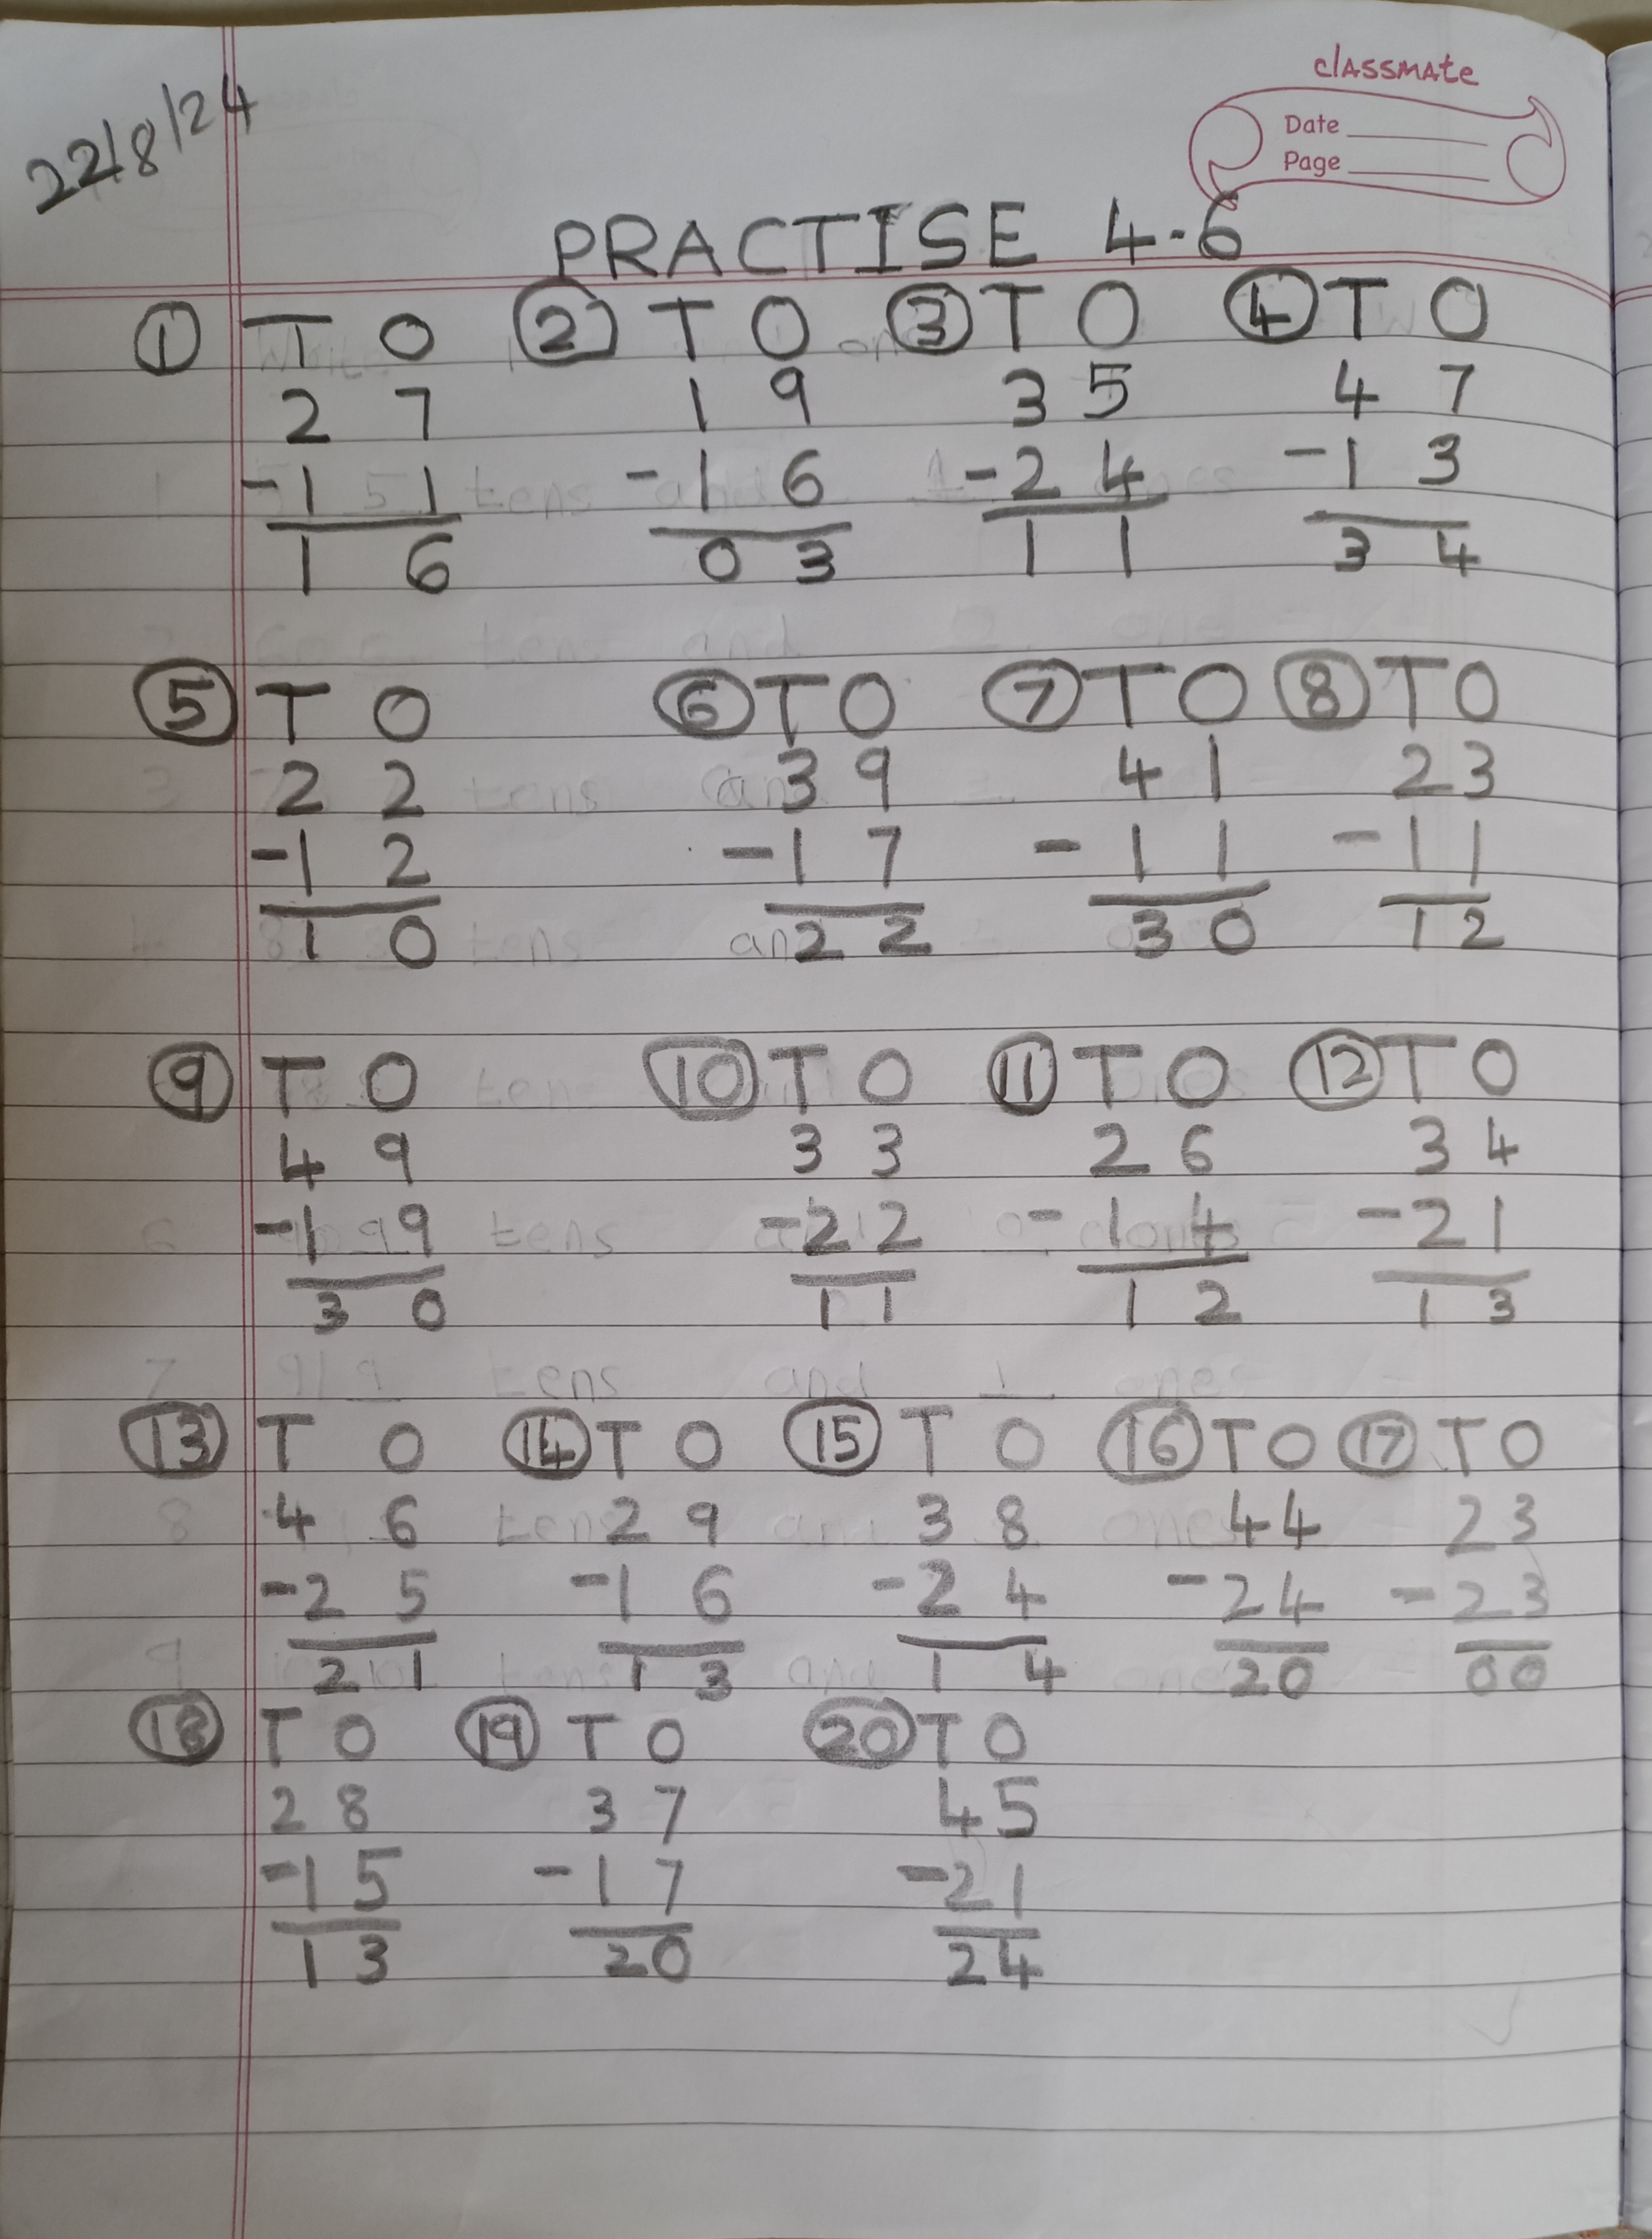 classmate
Date
Page
22/8/24
PRACTISE 4.6
1 T O 2 T O 3 T O 4 T O
2 7 1 9 3 5 4 7
-1 1 -1 6 -2 4 -1 3
1 6 0 3 1 1 3 4
5 T O 6 T O 7 T O 8 T O
2 2 3 9 4 1 2 3
-1 2 -1 7 -1 1 -1 1
1 0 2 2 3 0 1 2
9 T O 10 T O 11 T O 12 T O
4 9 3 3 2 6 3 4
-1 9 -2 2 -1 4 -2 1
3 0 1 1 1 2 1 3
13 T O 14 T O 15 T O 16 T O 17 T O
4 6 2 9 3 8 4 4 2 3
-2 5 -1 6 -2 4 -2 4 -2 3
2 1 1 3 1 4 2 0 0 0
18 T O 19 T O 20 T O
2 8 3 7 4 5
-1 5 -1 7 -2 1
1 3 2 0 2 4